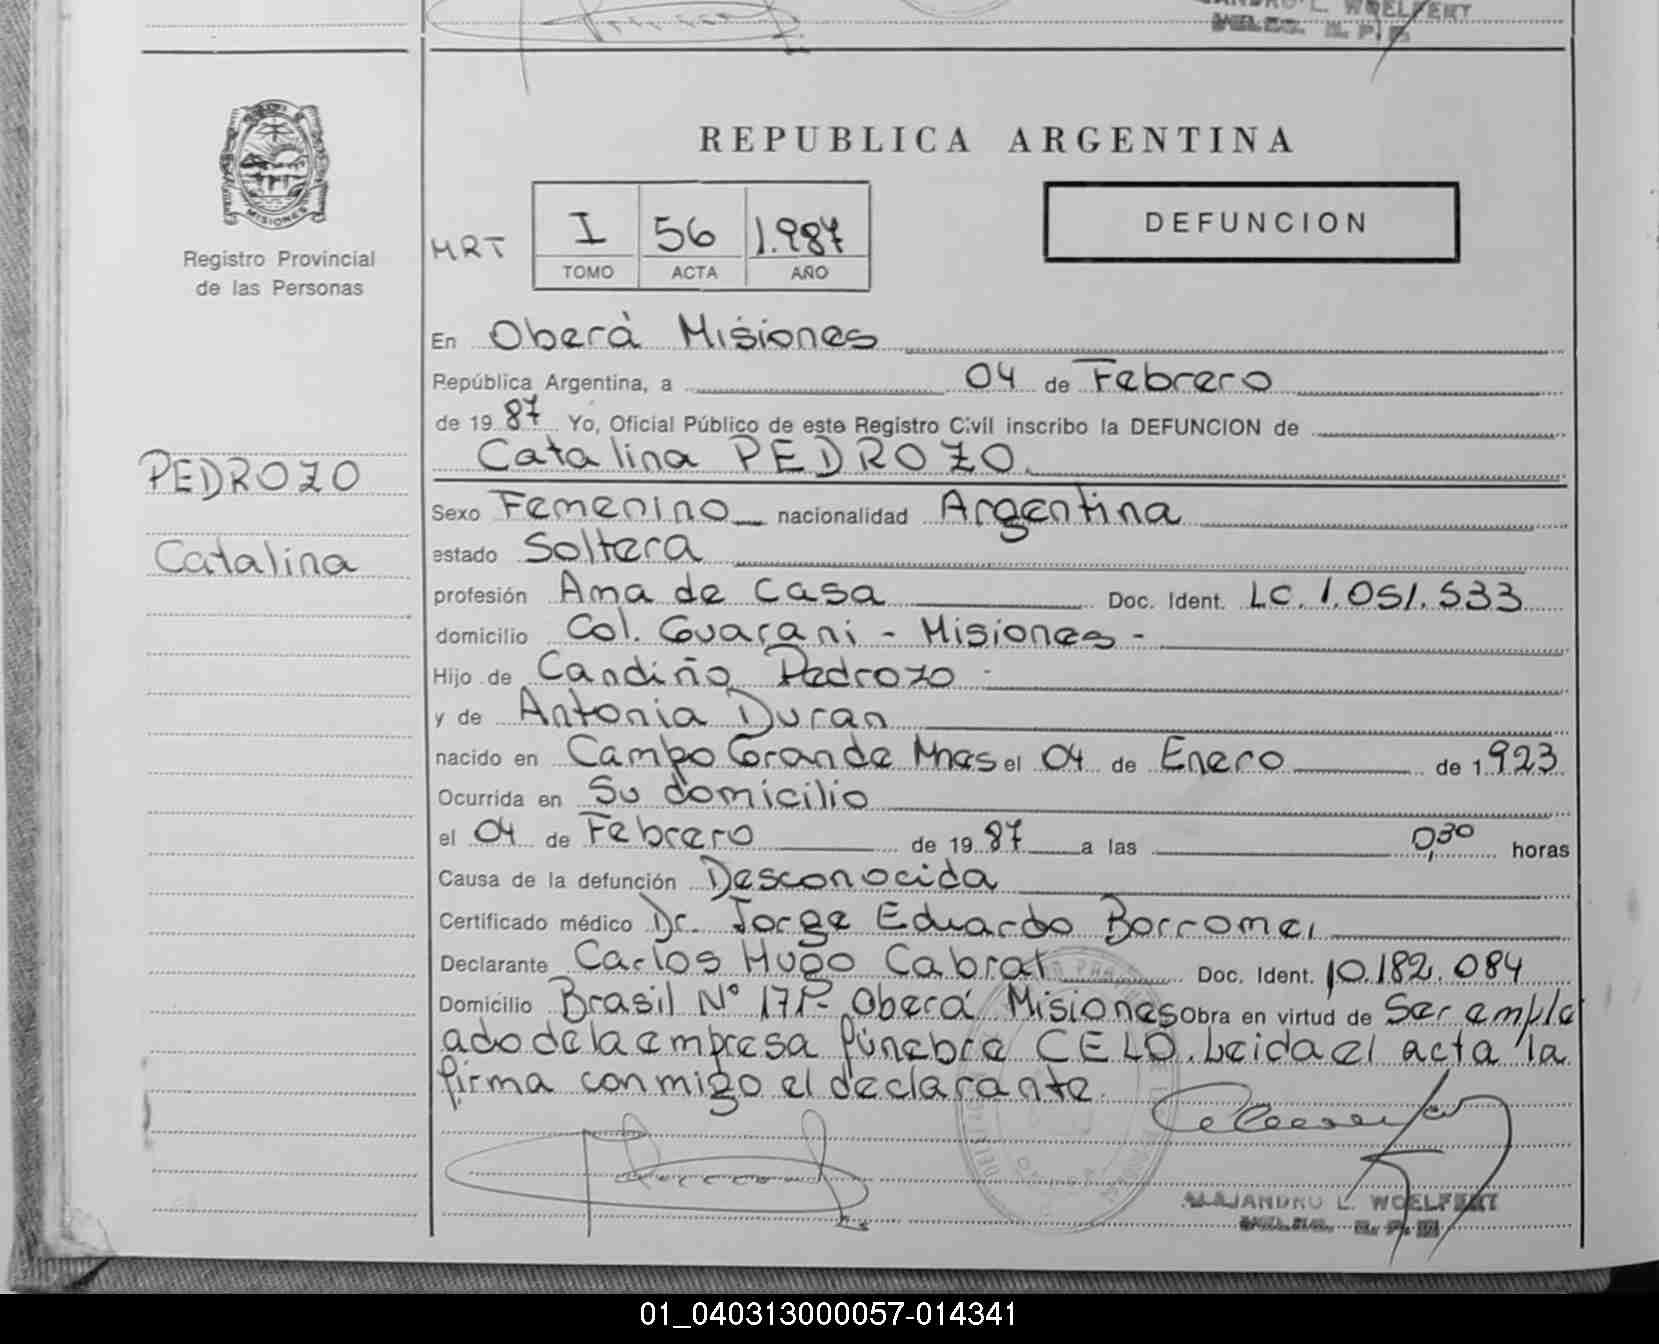 L. WOELFERT
MISIONES
Registro Provincial
de las Personas
REPUBLICA ARGENTINA
DEFUNCION
MRT I 56 1.987
TOMO ACTA AÑO
En Oberá Misiones
República Argentina, a 04 de Febrero
de 19 87 Yo, Oficial Público de este Registro Civil inscribo la DEFUNCION de
Catalina PEDROZO.
PEDROZO
Catalina
Sexo Femenino nacionalidad Argentina
estado Soltera
profesión Ama de Casa Doc. Ident. LC. 1.051.533
domicilio Col. Guarani - Misiones -
Hijo de Candiño Pedrozo -
y de Antonia Duran
nacido en Campo Grande Mnes el 04 de Enero de 1 923
Ocurrida en Su domicilio
el 04 de Febrero de 19 87 a las 0,30 horas
Causa de la defunción Desconocida
Certificado médico Dr. Jorge Eduardo Borromei
Declarante Carlos Hugo Cabral Doc. Ident. 10.182.084
Domicilio Brasil N° Oberá Misiones Obra en virtud de Ser emple
ado de la empresa fúnebre CELO. Leida el acta la
firma conmigo el declarante.
ALEJANDRO L. WOELFERT
01_040313000057-014341